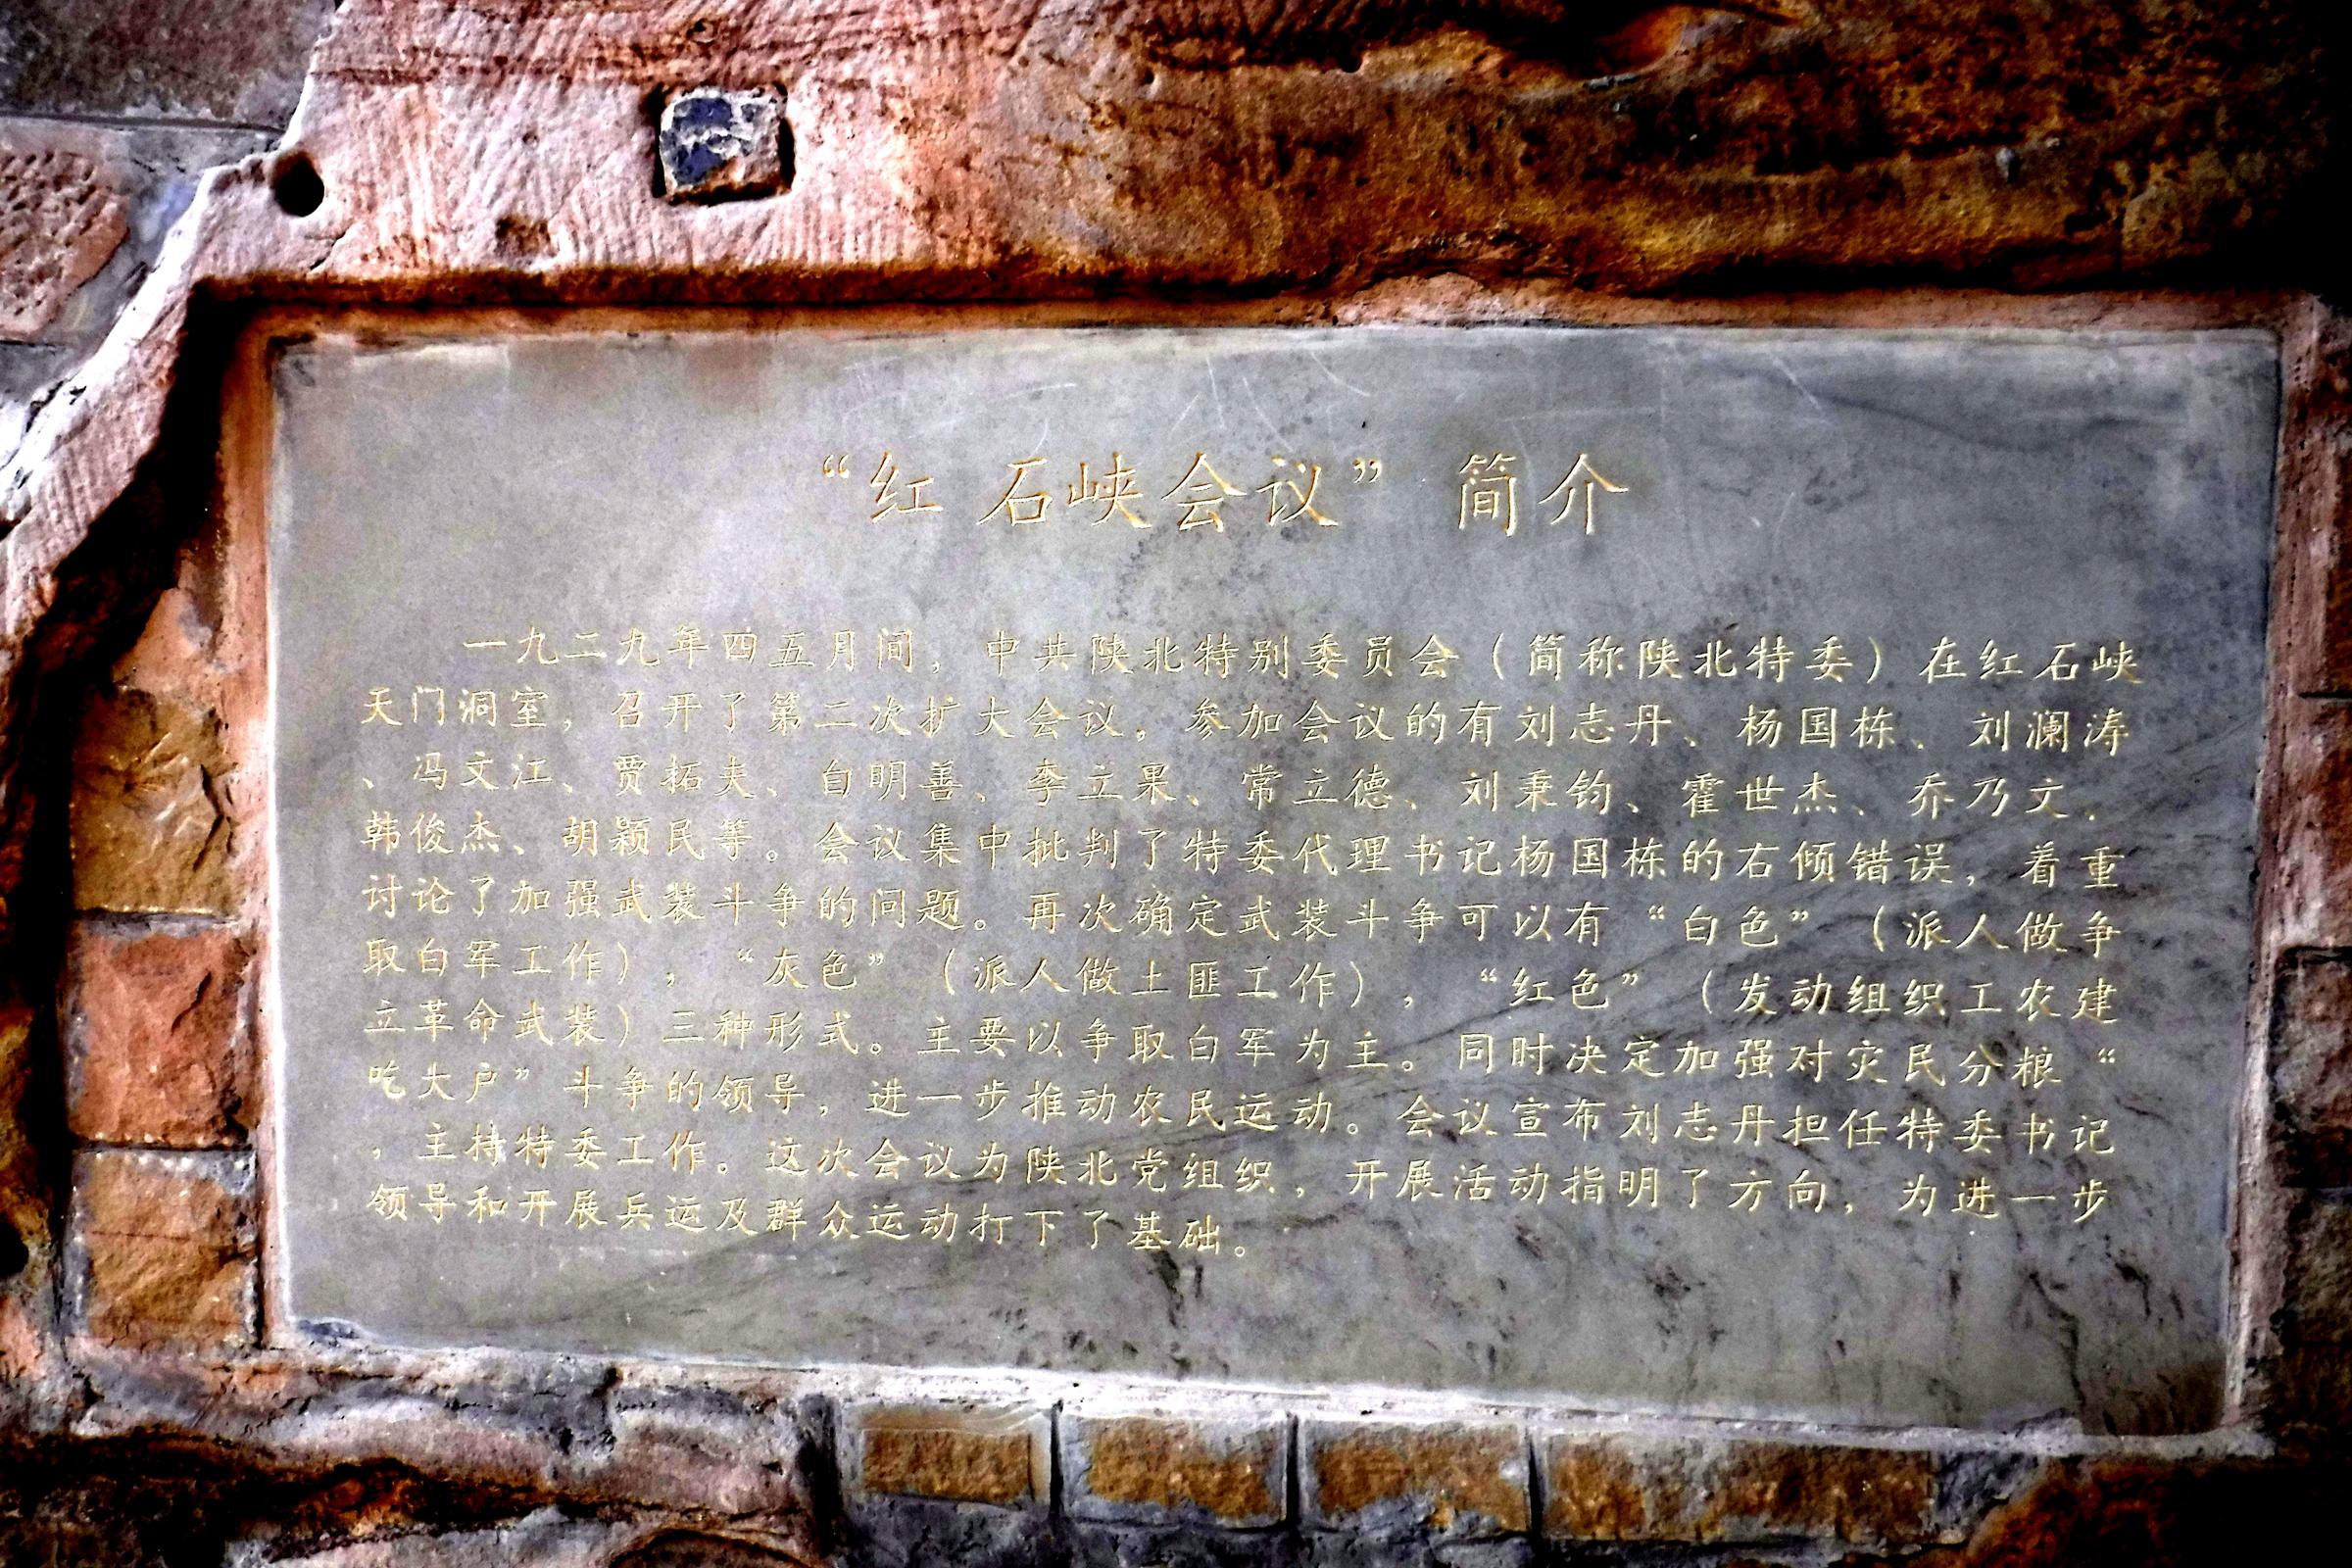 “红石峡会议” 简介
一九二九年四五月间，中共陕北特别委员会（简称陕北特委）在红石峡
天门洞室，召开了第二次扩大会议，参加会议的有刘志丹、杨国栋、刘澜涛
、冯文江、贾拓夫、白明善、李立果、常立德、刘秉钧、霍世杰、乔乃文、
韩俊杰、胡颖民等。会议集中批判了特委代理书记杨国栋的右倾错误，着重
讨论了加强武装斗争的问题。再次确定武装斗争可以有“白色”（派人做争
取白军工作），“灰色”（派人做土匪工作），“红色”（发动组织工农建
立革命武装）三种形式。主要以争取白军为主。同时决定加强对灾民分粮“
吃大户”斗争的领导，进一步推动农民运动。会议宣布刘志丹担任特委书记
，主持特委工作。这次会议为陕北党组织，开展活动指明了方向，为进一步
领导和开展兵运及群众运动打下了基础。